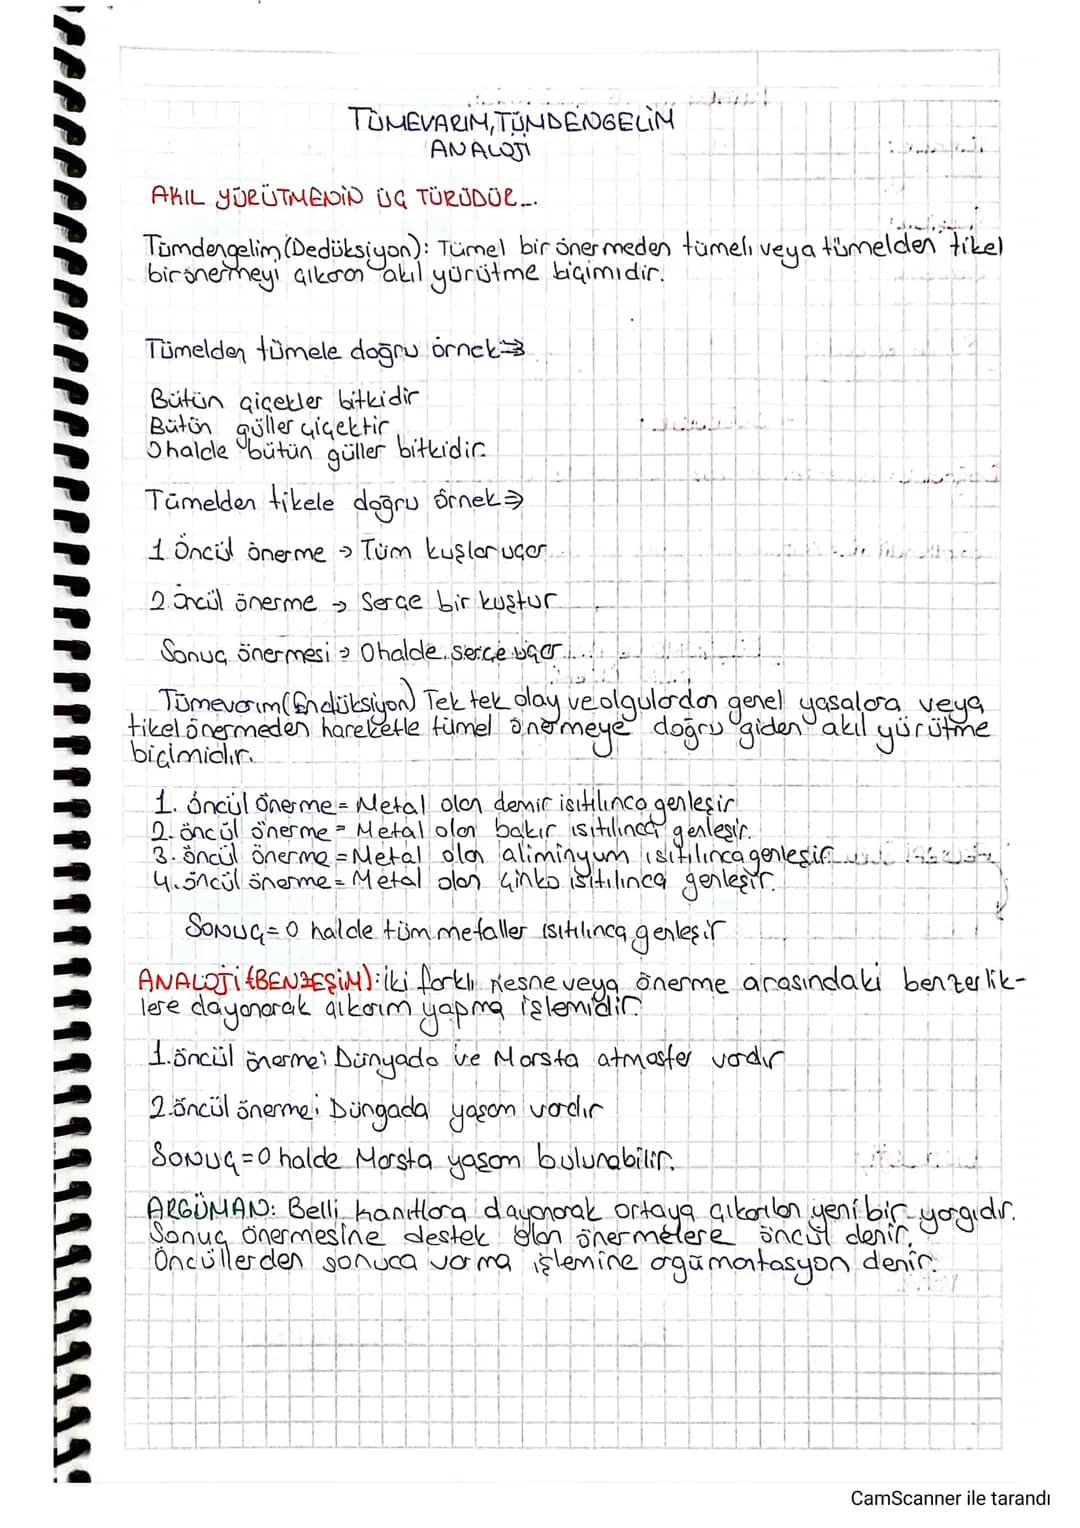 TÜMEVARIM, TÜMDENGELİM
ANALOJİ
AKIL YÜRÜTMENİN ÜÇ TÜRÜDÜR...
Tümdengelim (Dedüksiyon): Tümel bir önermeden tümeli veya tümelden tikel
bir önermeyi çıkaran akıl yürütme biçimidir.
Tümelden tümele doğru örnek⇒
Bütün çiçekler bitkidir
Bütün güller çiçektir
O halde bütün güller bitkidir.
Tümelden tikele doğru örnek⇒
1 Öncül önerme → Tüm kuşlar uçar
2.öncül önerme → Serçe bir kuştur
Sonuç önermesi → O halde serçe uçar
Tümevarım (Endüksiyon) Tek tek olay ve olgulardan genel yasalara veya
tikel önermeden hareketle tümel önermeye doğru giden akıl yürütme
biçimidir.
1. öncül önerme = Metal olan demir ısıtılınca genleşir
2. öncül önerme = Metal olan bakır ısıtılınca genleşir.
3. öncül önerme = Metal olan aliminyum ısıtılınca genleşir
4. öncül önerme = Metal olan çinko ısıtılınca genleşir.
SONUÇ = O halde tüm metaller ısıtılınca genleşir
ANALOJİ (BENZEŞİM): İki farklı nesne veya önerme arasındaki benzerlik-
lere dayanarak çıkarım yapma işlemidir.
1.öncül önerme; Dünyada ve Marsta atmosfer vardır
2.öncül önerme; Dünyada yaşam vardır
SONUÇ = O halde Marsta yaşam bulunabilir.
ARGÜMAN: Belli kanıtlara dayanarak ortaya çıkarılan yeni bir yargıdır.
Sonuç önermesine destek olan önermelere öncül denir.
Öncüllerden sonuca varma işlemine argümantasyon denir.
CamScanner ile tarandı